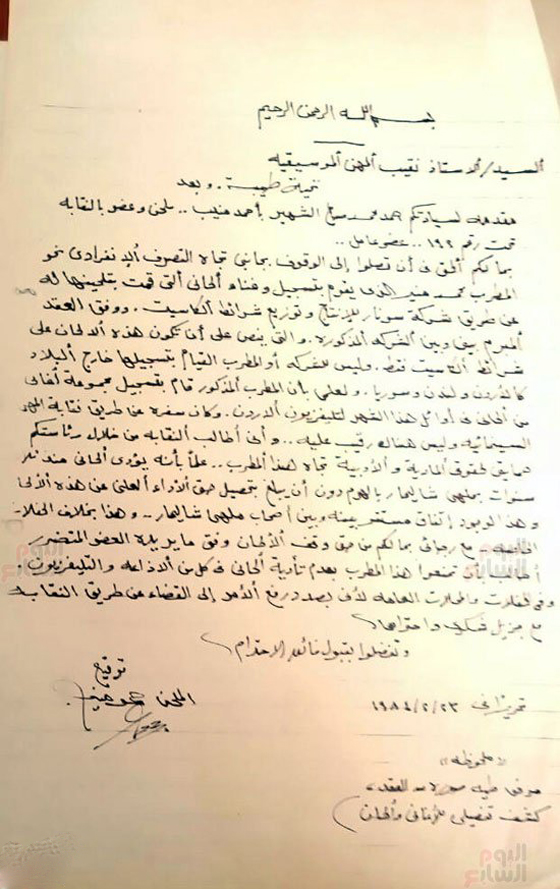 بسم الله الرحمن الرحيم
السيد/ الاستاذ نقيب المهن الموسيقيه
تحية طيبة .. وبعد
مقدمه لسيادتكم احمد محمد صالح الشهير بأحمد منيب .. ملحن وعضو بالنقابه
تحت رقم ١٩٢ .. عضو عامل ..
بما لكم الحق فى أن تصلوا إلى الوقوف بجانبى تجاه التصرف الإنفرادى نحو
المطرب محمد منير الذى يقوم بتسجيل وغناء ألحانى التى قمت بتلحينها له
عن طريق شركة سونار للإنتاج وتوزيع شرائط الكاسيت .. ووفق العقد
المبرم بينى وبين الشركه المذكوره .. والتى ينص على أن تكون هذه الالحان على
شرائط الكاسيت فقط .. وليس للشركه أو المطرب القيام بتسجيلها خارج البلاد
كالاردن ولندن وسوريا .. ولعلمى بأن المطرب المذكور قام بتسجيل مجموعة أغانى
من ألحانى فى أوائل هذا الشهر لتليفزيون الاردن .. وكان سفره عن طريق نقابة المهن
السينمائية وليس هناك رقيب عليه .. وأنى أطالب النقابه من خلال رئاستكم
حمايتى لحقوقى المادية والأدبية تجاه هذا المطرب .. علماً بأنه يؤدى ألحانى منذ ثلاث
سنوات بملهى شاليمار بالهرم دون أن يبلغ بتحصيل حق الأداء العلنى عن هذه الألحا
وهذا الوجود إتفاق مستقر بينه وبين أصحاب ملهى شاليمار .. وهذا بخلاف الحفلات
الخاصه .. مع رجائى بما لكم من حق وقف الألحان وفق ما يريده العضو المتضرر
أطالب بأن تمنعوا هذا المطرب بعدم تأدية ألحانى فى كل من الاذاعه والتليفزيون
وفى الحفلات والمحلات العامه لأنى بصدد رفع الأمر إلى القضاء عن طريق النقابه
مع جزيل شكرى واحترامى
وتفضلوا بقبول فائق الاحترام
توقيع
الملحن احمد منيب
تحريراً فى ٢٣/٢/١٩٨٤
«ملحوظه»
مرفق طيه صورة من العقد
كشف تفصيلى للأغانى والحان
اليوم السابع
اليوم السابع